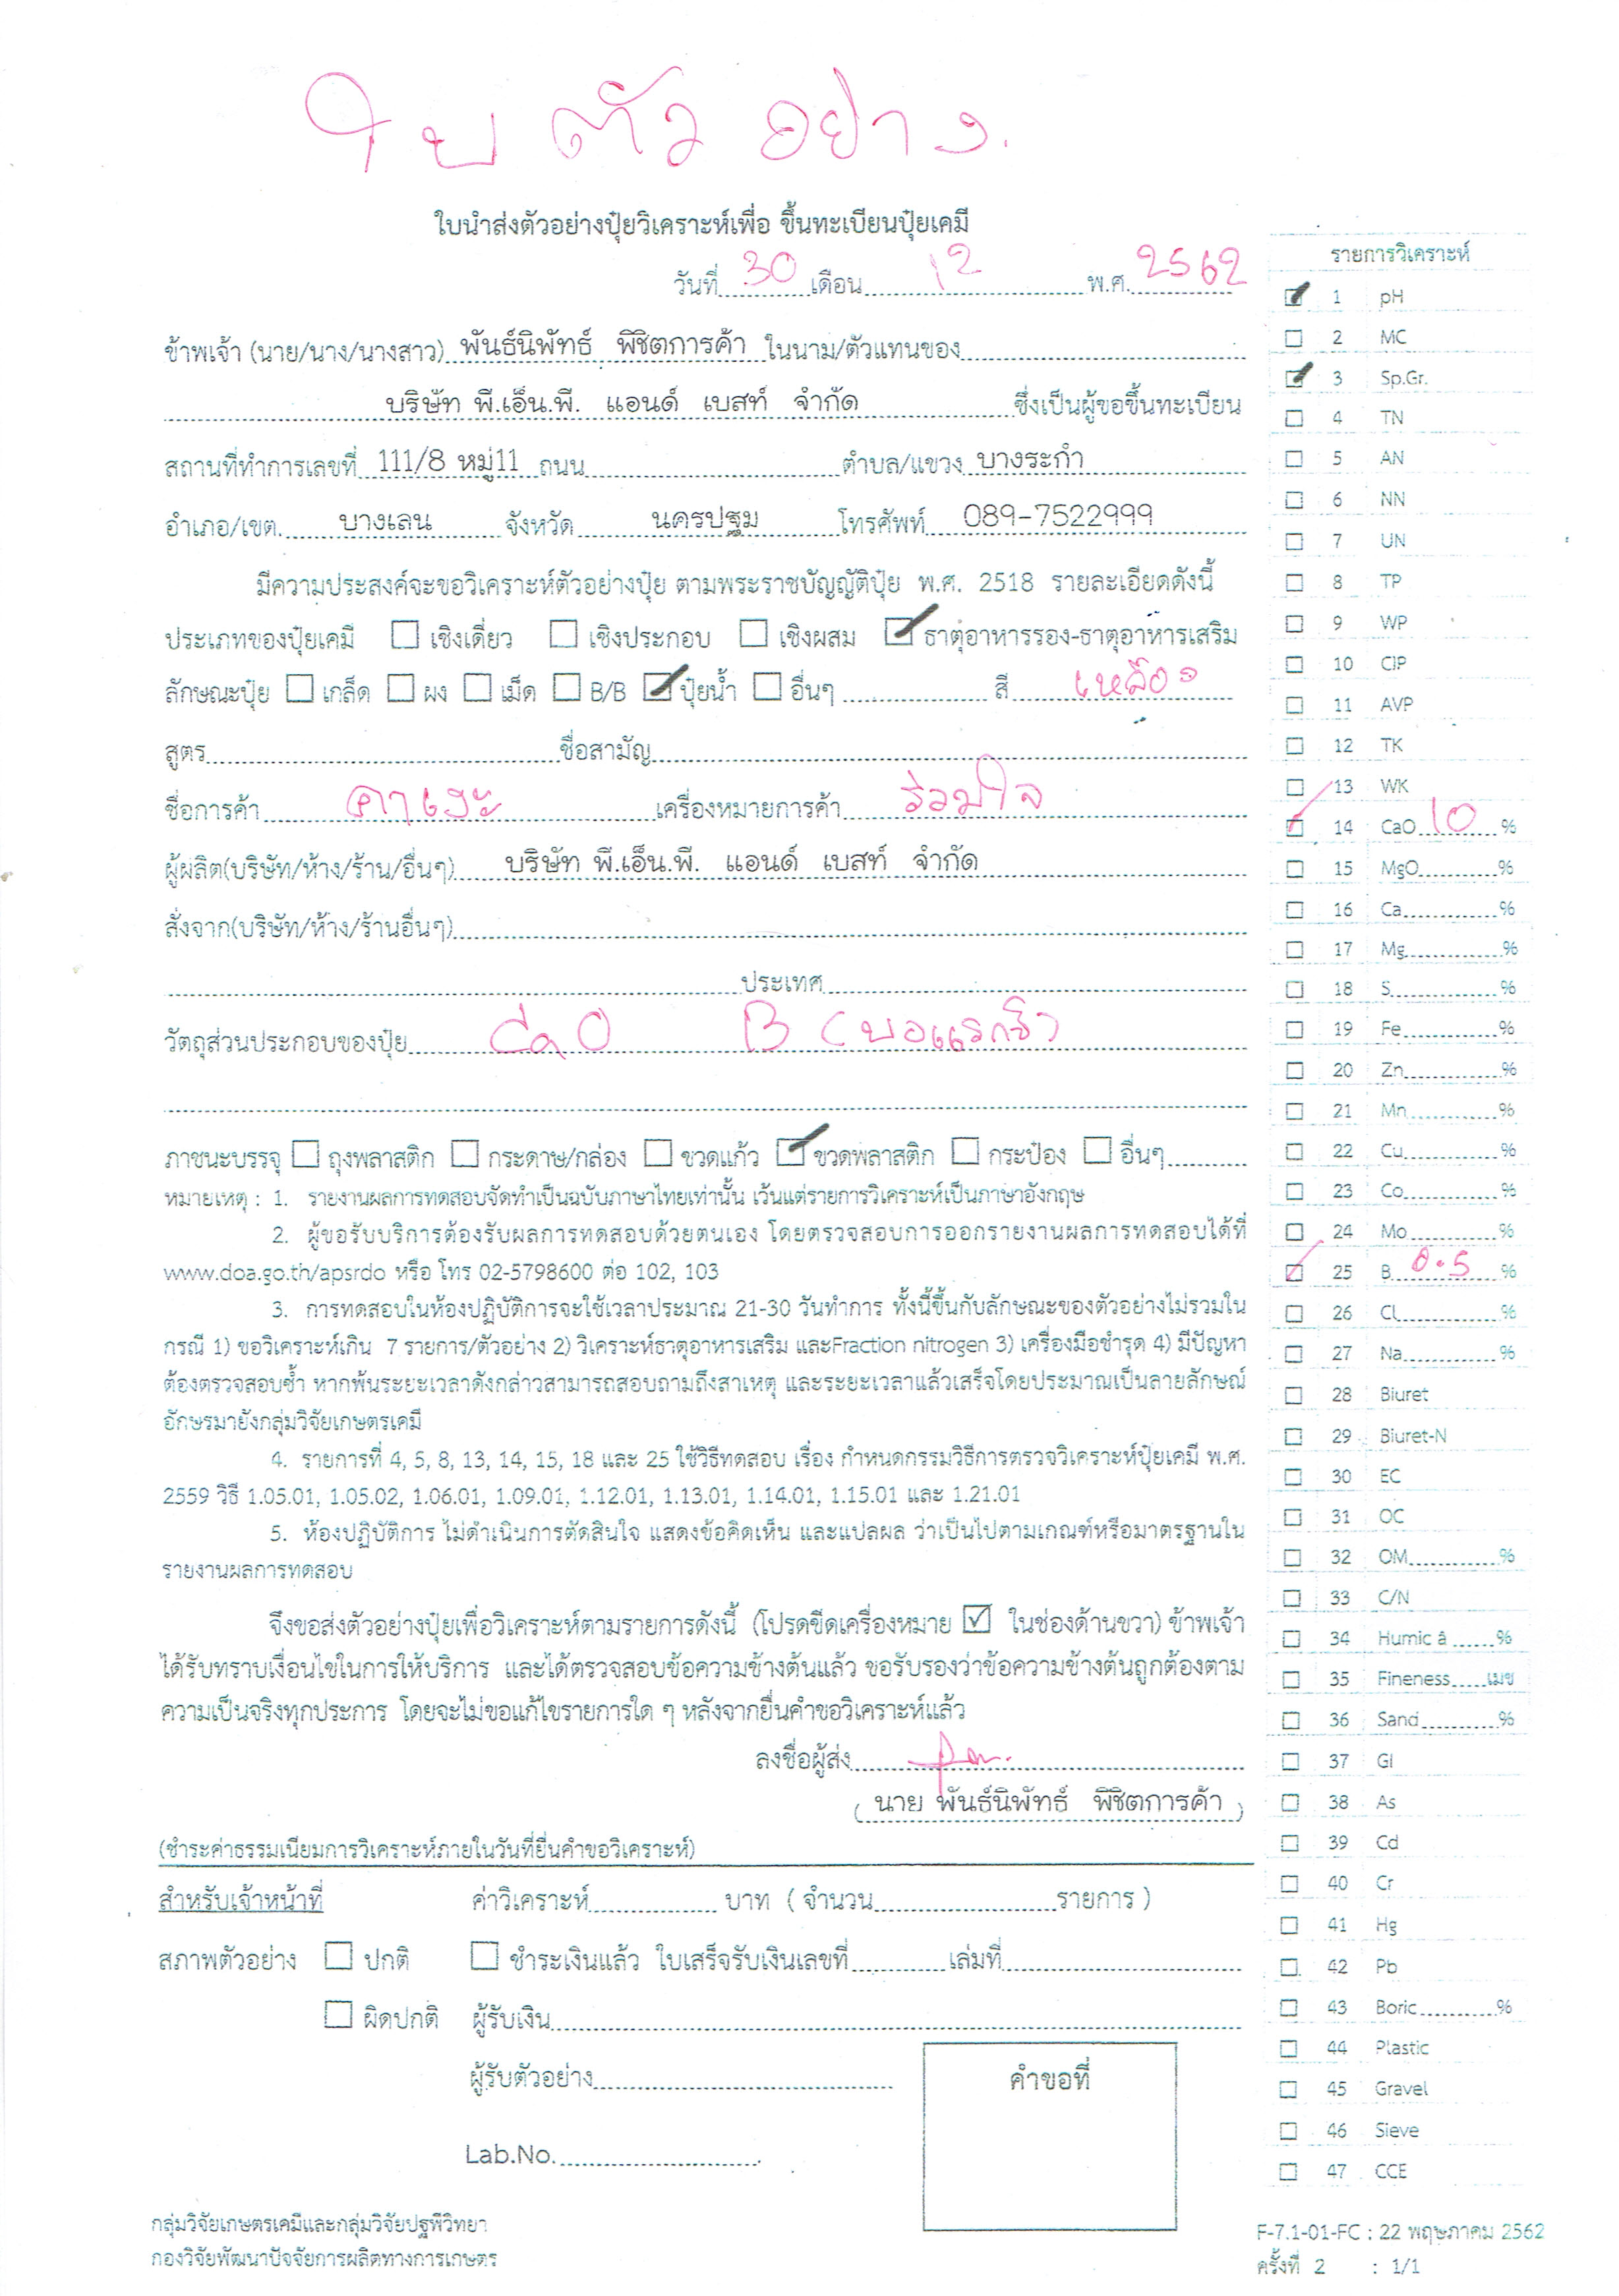 ใบตัวอย่าง.
ใบนำส่งตัวอย่างปุ๋ยวิเคราะห์เพื่อ ขึ้นทะเบียนปุ๋ยเคมี
วันที่ 30 เดือน 12 พ.ศ. 2562
ข้าพเจ้า (นาย/นาง/นางสาว) พันธ์นิพัทธ์ พิชิตการค้า ในนาม/ตัวแทนของ
บริษัท พี.เอ็น.พี. แอนด์ เบสท์ จำกัด ซึ่งเป็นผู้ขอขึ้นทะเบียน
สถานที่ทำการเลขที่ 111/8 หมู่11 ถนน ตำบล/แขวง บางระกำ
อำเภอ/เขต. บางเลน จังหวัด นครปฐม โทรศัพท์ 089-7522999
มีความประสงค์จะขอวิเคราะห์ตัวอย่างปุ๋ย ตามพระราชบัญญัติปุ๋ย พ.ศ. 2518 รายละเอียดดังนี้
ประเภทของปุ๋ยเคมี เชิงเดี่ยว เชิงประกอบ เชิงผสม ธาตุอาหารรอง-ธาตุอาหารเสริม
ลักษณะปุ๋ย เกล็ด ผง เม็ด B/B ปุ๋ยน้ำ อื่นๆ สี เหลือง
สูตร ชื่อสามัญ
ชื่อการค้า เครื่องหมายการค้า ร่วมใจ
ผู้ผลิต(บริษัท/ห้าง/ร้าน/อื่นๆ) บริษัท พี.เอ็น.พี. แอนด์ เบสท์ จำกัด
สั่งจาก(บริษัท/ห้าง/ร้านอื่นๆ)
ประเทศ
วัตถุส่วนประกอบของปุ๋ย CaO B (บอแรกซ์)
ภาชนะบรรจุ ถุงพลาสติก กระดาษ/กล่อง ขวดแก้ว ขวดพลาสติก กระป๋อง อื่นๆ
หมายเหตุ : 1. รายงานผลการทดสอบจัดทำเป็นฉบับภาษาไทยเท่านั้น เว้นแต่รายการวิเคราะห์เป็นภาษาอังกฤษ
2. ผู้ขอรับบริการต้องรับผลการทดสอบด้วยตนเอง โดยตรวจสอบการออกรายงานผลการทดสอบได้ที่
www.doa.go.th/apsrdo หรือ โทร 02-5798600 ต่อ 102, 103
3. การทดสอบในห้องปฏิบัติการจะใช้เวลาประมาณ 21-30 วันทำการ ทั้งนี้ขึ้นกับลักษณะของตัวอย่างไม่รวมใน
กรณี 1) ขอวิเคราะห์เกิน 7 รายการ/ตัวอย่าง 2) วิเคราะห์ธาตุอาหารเสริม และFraction nitrogen 3) เครื่องมือชำรุด 4) มีปัญหา
ต้องตรวจสอบซ้ำ หากพ้นระยะเวลาดังกล่าวสามารถสอบถามถึงสาเหตุ และระยะเวลาแล้วเสร็จโดยประมาณเป็นลายลักษณ์
อักษรมายังกลุ่มวิจัยเกษตรเคมี
4. รายการที่ 4, 5, 8, 13, 14, 15, 18 และ 25 ใช้วิธีทดสอบ เรื่อง กำหนดกรรมวิธีการตรวจวิเคราะห์ปุ๋ยเคมี พ.ศ.
2559 วิธี 1.05.01, 1.05.02, 1.06.01, 1.09.01, 1.12.01, 1.13.01, 1.14.01, 1.15.01 และ 1.21.01
5. ห้องปฏิบัติการ ไม่ดำเนินการตัดสินใจ แสดงข้อคิดเห็น และแปลผล ว่าเป็นไปตามเกณฑ์หรือมาตรฐานใน
รายงานผลการทดสอบ
จึงขอส่งตัวอย่างปุ๋ยเพื่อวิเคราะห์ตามรายการดังนี้ (โปรดขีดเครื่องหมาย ☑ ในช่องด้านขวา) ข้าพเจ้า
ได้รับทราบเงื่อนไขในการให้บริการ และได้ตรวจสอบข้อความข้างต้นแล้ว ขอรับรองว่าข้อความข้างต้นถูกต้องตาม
ความเป็นจริงทุกประการ โดยจะไม่ขอแก้ไขรายการใด ๆ หลังจากยื่นคำขอวิเคราะห์แล้ว
ลงชื่อผู้ส่ง
( นาย พันธ์นิพัทธ์ พิชิตการค้า )
(ชำระค่าธรรมเนียมการวิเคราะห์ภายในวันที่ยื่นคำขอวิเคราะห์)
สำหรับเจ้าหน้าที่ ค่าวิเคราะห์ บาท ( จำนวน รายการ )
สภาพตัวอย่าง ปกติ ชำระเงินแล้ว ใบเสร็จรับเงินเลขที่ เล่มที่
ผิดปกติ ผู้รับเงิน
ผู้รับตัวอย่าง
คำขอที่
Lab.No.
กลุ่มวิจัยเกษตรเคมีและกลุ่มวิจัยปฐพีวิทยา
กองวิจัยพัฒนาปัจจัยการผลิตทางการเกษตร
รายการวิเคราะห์
1 pH
2 MC
3 Sp.Gr.
4 TN
5 AN
6 NN
7 UN
8 TP
9 WP
10 CIP
11 AVP
12 TK
13 WK
14 CaO 10 %
15 MgO %
16 Ca %
17 Mg %
18 S %
19 Fe %
20 Zn %
21 Mn %
22 Cu %
23 Co %
24 Mo %
25 B 0.5 %
26 Cl %
27 Na %
28 Biuret
29 Biuret-N
30 EC
31 OC
32 OM %
33 C/N
34 Humic â %
35 Fineness เมช
36 Sand %
37 GI
38 As
39 Cd
40 Cr
41 Hg
42 Pb
43 Boric %
44 Plastic
45 Gravel
46 Sieve
47 CCE
F-7.1-01-FC : 22 พฤษภาคม 2562
ครั้งที่ 2 : 1/1